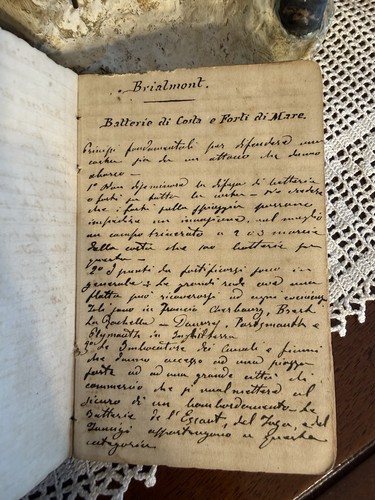 Brialmont.
Batterie di Costa e Forti di Mare.
Principi fondamentali per difendere una
costa sia da un attacco che da uno
sbarco —
1° Non disseminare la difesa di batterie
o forti su tutta la costa
che i forti sulla spiaggia possano
impedire un invasione, val meglio
un campo trincerato a 2 o 3 marcie
dalla costa che 100 batterie su
questa —
2° I punti da fortificarsi sono in
generale: 1° Le grandi rade ove una
flotta può ricoverarsi ad ogni evenienza
Tali sono in Francia Cherbourg, Brest
La Rochelle — Portsmouth e
Plymouth in Inghilterra
2° Le Imboccature dei Canali e fiumi
che danno accesso ad una piazza
forte od ad una grande città di
commercio che si vuol mettere al
sicuro di un bombardamento Le
Batterie de l'Escaut, del Tago, e del
Tamigi appartengono a questa
categoria